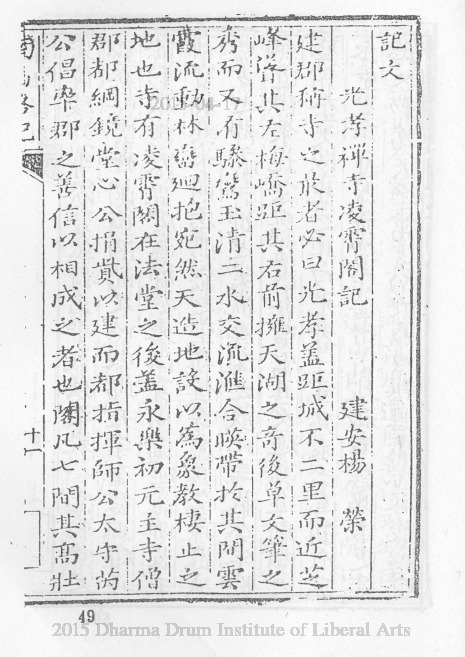 記文
光孝禪寺凌霄閣記
建安楊 榮
建郡稱寺之最者必曰光孝蓋距城不二里而近芝
峰峯其左梅嶠距其右前擁天湖之奇後草文筆之
秀而又有驂鸞玉清二水交流滙合暎帶於其間雲
霞流動林巒廻抱宛然天造地設以為象教棲止之
地也寺有凌霄閣在法堂之後蓋永樂初元主寺僧
郡都綱鏡堂心公捐貲以建而都指揮師公太守芮
公倡率郡之善信以相成之者也閣凡七間其高壯
十一
2015-04-17
49
2015 Dharma Drum Institute of Liberal Arts